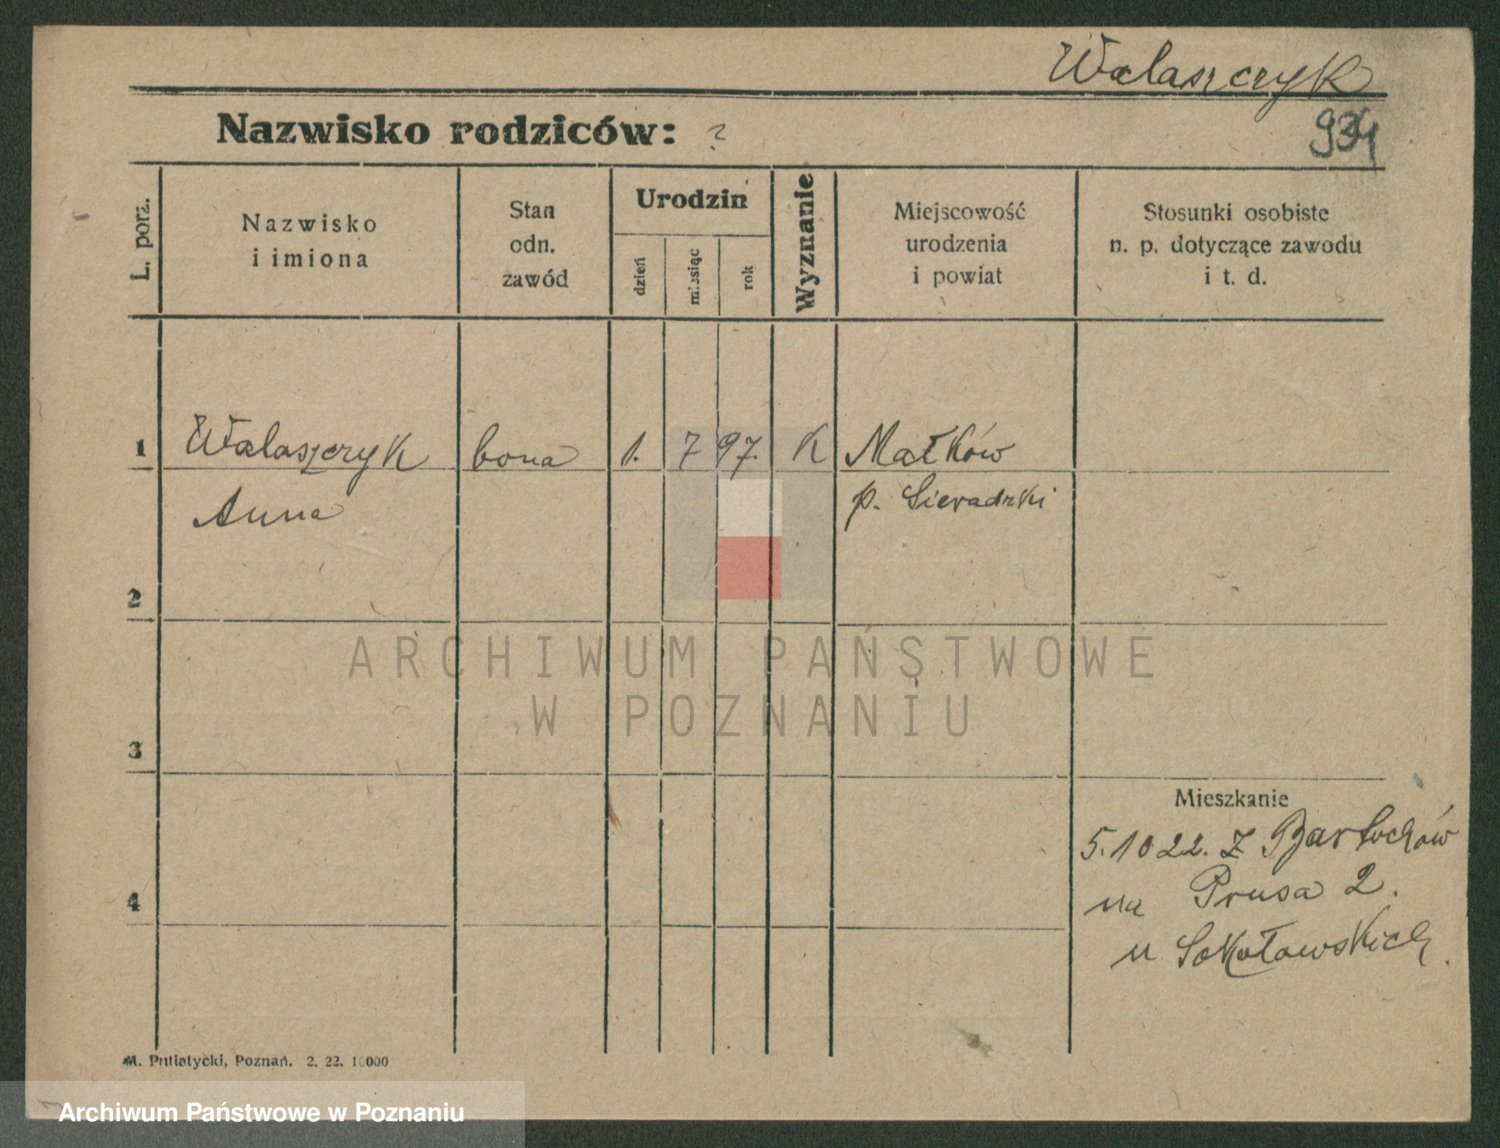 Walaszczyk
934
Nazwisko rodziców: ?
L. porz.
Nazwisko
i imiona
Stan
odn.
zawód
Urodzin
dzień
miesiąc
rok
Wyznanie
Miejscowość
urodzenia
i powiat
Stosunki osobiste
n. p. dotyczące zawodu
i t. d.
1 Walaszczyk bona 1. 7 97. K Małków
Anna p. Sieradzki
2
3
4
Mieszkanie
5.10 22. z Bartochów
na Prusa 2.
u Sokołowskich.
M. Putiatycki, Poznań. 2. 22. 10000
ARCHIWUM PAŃSTWOWE
W POZNANIU
Archiwum Państwowe w Poznaniu